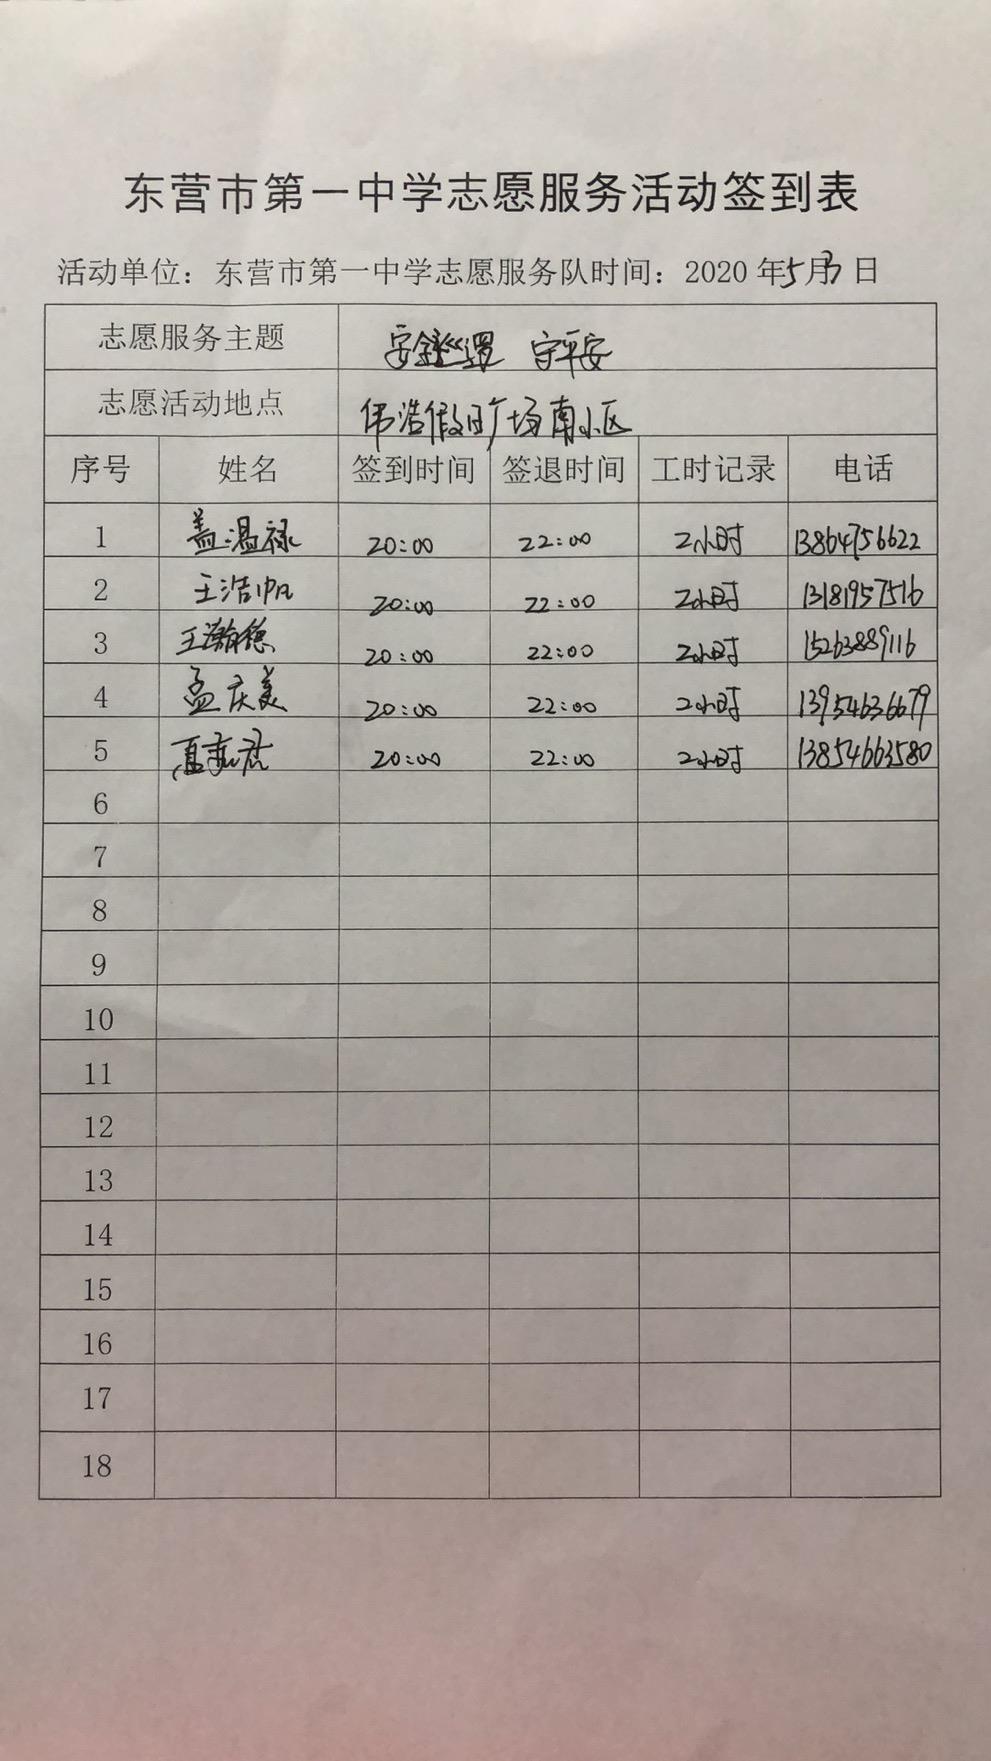 东营市第一中学志愿服务活动签到表
活动单位：东营市第一中学志愿服务队时间：2020年5月3日
志愿服务主题 安全巡逻 守平安
志愿活动地点 伟浩假日广场南小区
序号 姓名 签到时间 签退时间 工时记录 电话
1 盖温禄 20:00 22:00 2小时 13864756622
2 王浩帆 20:00 22:00 2小时 13181957516
3 王瀚德 20:00 22:00 2小时 15263889116
4 孟庆美 20:00 22:00 2小时 13954636679
5 20:00 22:00 2小时 13854663580
6
7
8
9
10
11
12
13
14
15
16
17
18